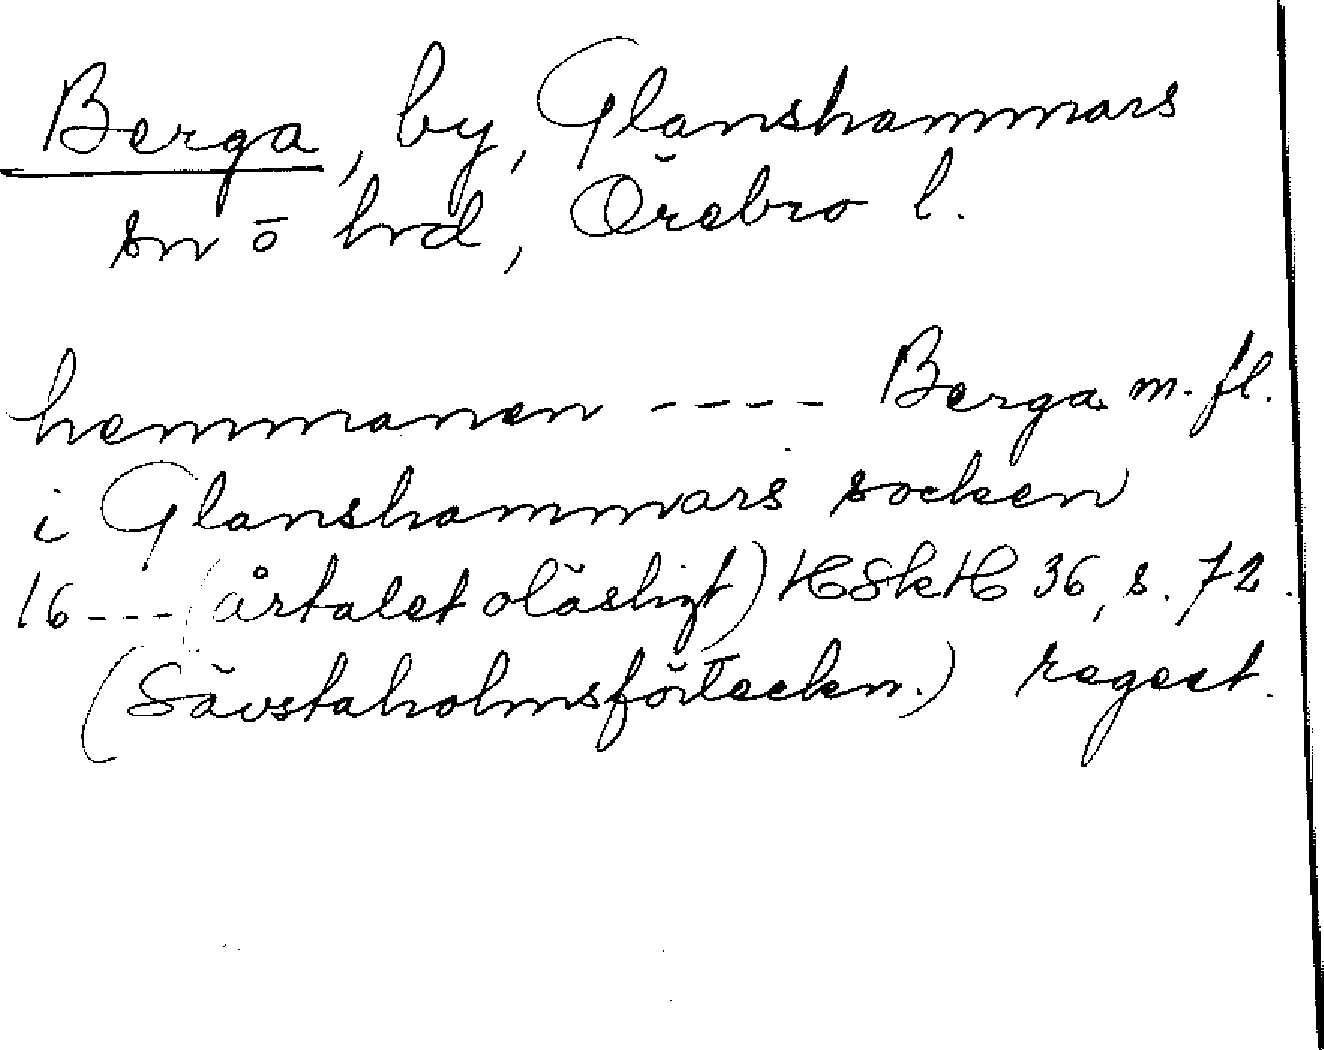 Berga, by, Glanshammars
sn o hrd, Örebro l.
hemmanen ---- Berga m. fl.
i Glanshammars socken
16--- (årtalet oläsligt) HSkH 36, s. 72.
(Sävstaholmsförteckn.) regest.